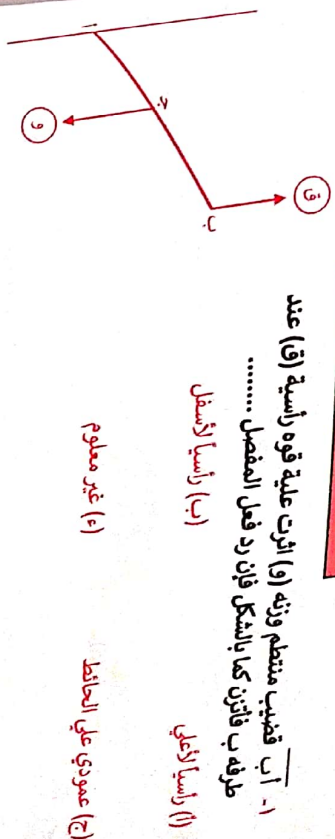 ١- أب قضيب منتظم وزنه (و) اثرت علية قوه رأسية (ق) عند
طرفه ب فاتزن كما بالشكل فإن رد فعل المفصل ........
(أ) رأسياً لأعلي (ب) رأسياً لأسفل
(ج) عمودي علي الحائط (ء) غير معلوم
ق
ب
ج
و
أ